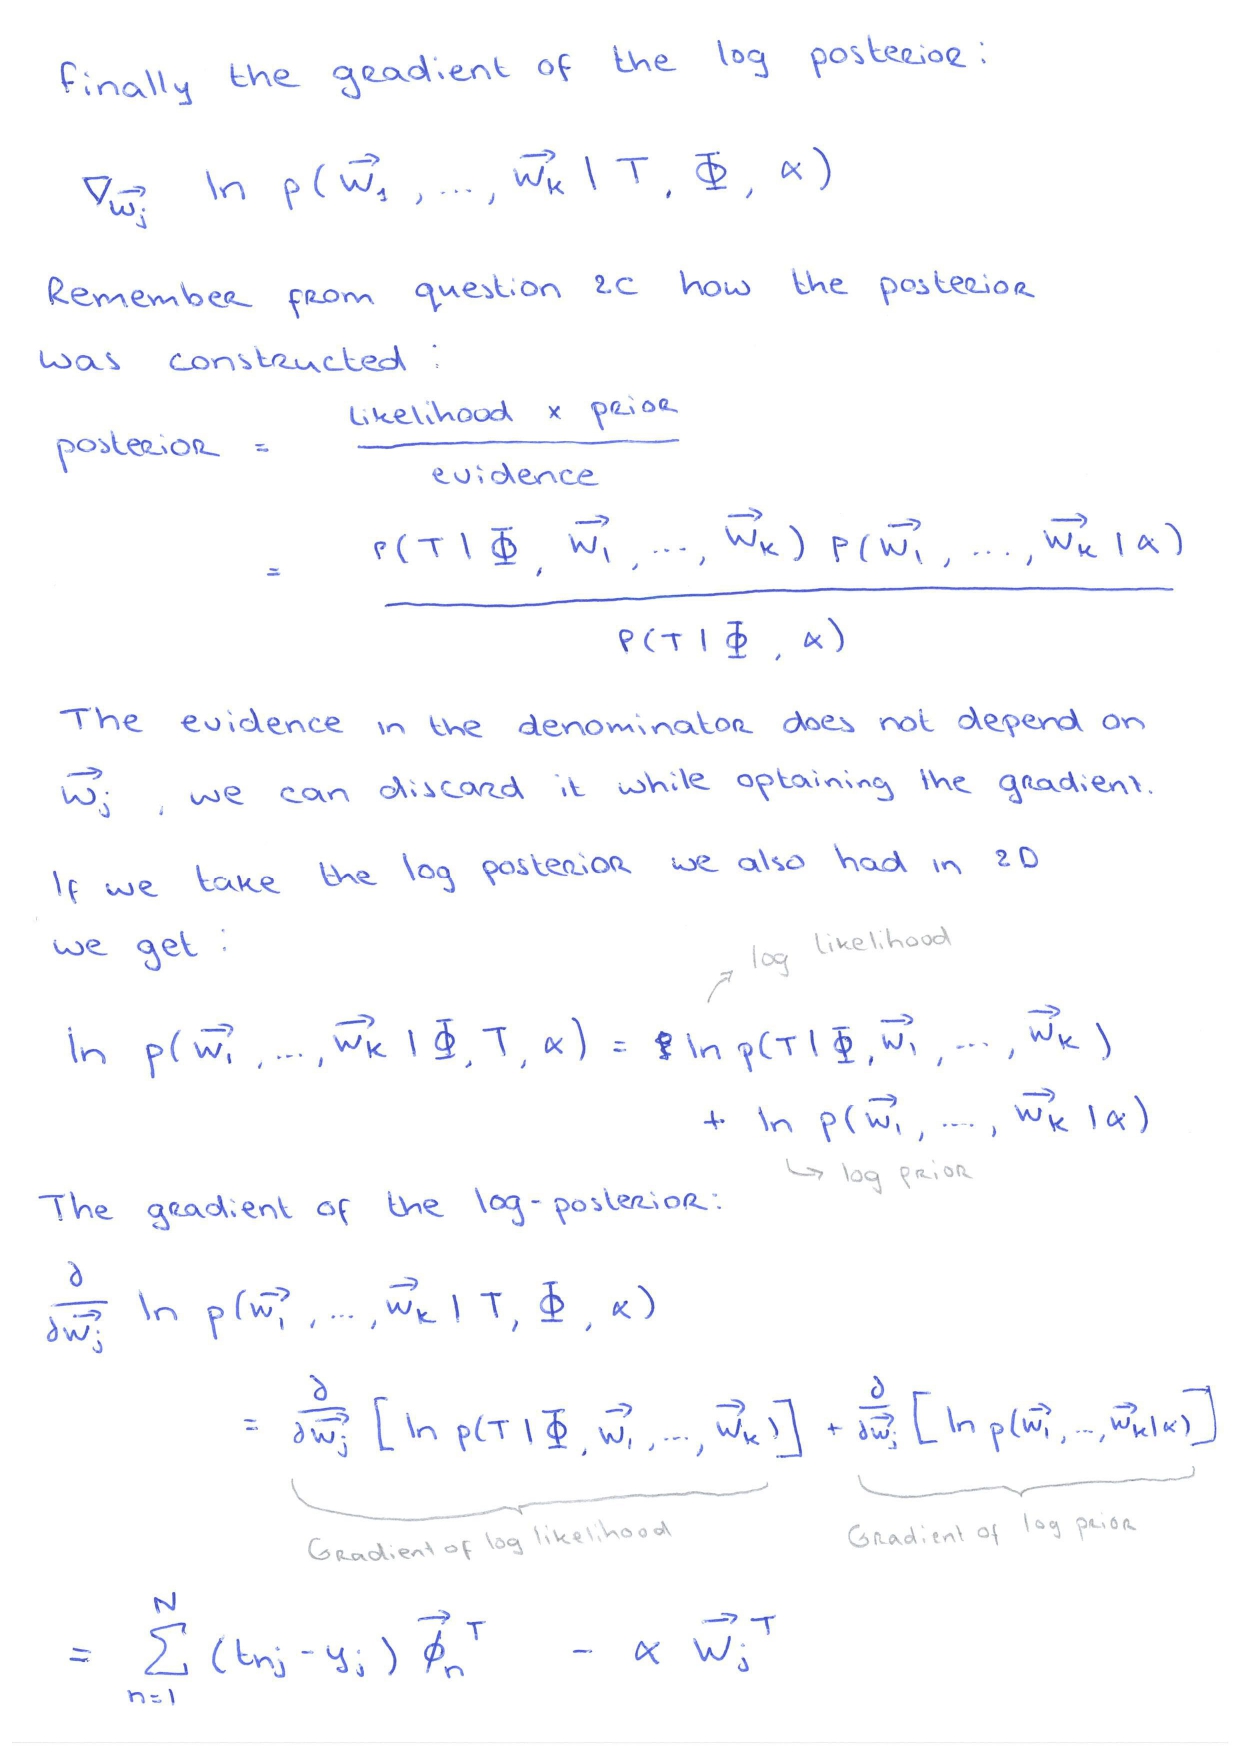 Finally the gradient of the log posterior:
∇_w⃗_j ln p(w⃗_1, ..., w⃗_K | T, Φ, α)
Remember from question 2C how the posterior
was constructed:
posterior = likelihood × prior / evidence
= P(T | Φ, w⃗_1, ..., w⃗_K) P(w⃗_1, ..., w⃗_K | α) / P(T | Φ, α)
The evidence in the denominator does not depend on
w⃗_j, we can discard it while optaining the gradient.
If we take the log posterior we also had in 2D
we get:
log likelihood
ln p(w⃗_1, ..., w⃗_K | Φ, T, α) = ln p(T | Φ, w⃗_1, ..., w⃗_K)
+ ln p(w⃗_1, ..., w⃗_K | α)
↳ log prior
The gradient of the log-posterior:
∂/∂w⃗_j ln p(w⃗_1, ..., w⃗_K | T, Φ, α)
= ∂/∂w⃗_j [ln p(T | Φ, w⃗_1, ..., w⃗_K)] + ∂/∂w⃗_j [ln p(w⃗_1, ..., w⃗_K | α)]
Gradient of log likelihood Gradient of log prior
= Σ_{n=1}^{N} (t_nj - y_j) ϕ⃗_n^T - α w⃗_j^T